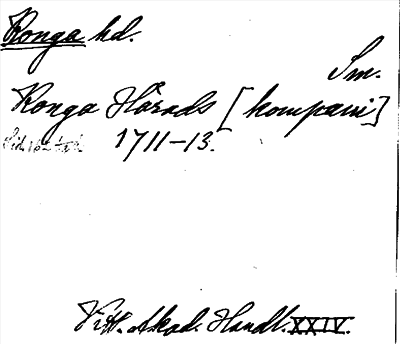 Konga hd.
Sm.
Konga Härads [kompani]
1711-13.
Vitt. Akad. Handl. XXIV.